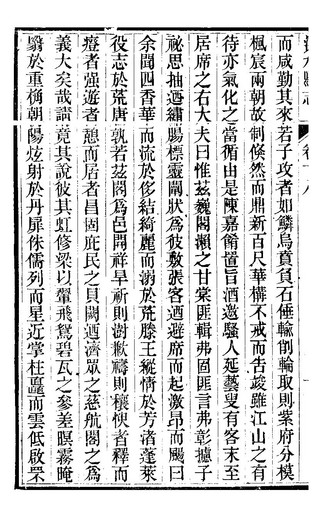 水縣志 卷十八
而咸勤其來若子攻者如鱗烏賁負石倕輸削輪取則案府分模
楓宸兩朝故制倏然而鼎新百尺華構不戒而告竣雖江山之有
待亦氣化之當循由是陳嘉餚置旨酒邀騷人延藝叟有客末至
居席之右大夫曰惟茲巍閣瀨之甘棠匪輯弗固匪言弗彰攄子
祕思抽迺繡腸標靈闡狀爲彼敷張客迺避席而起激昂而颺曰
余聞四香華而流於侈結綺麗而溺於荒滕王縱情於芳渚蓬萊
役志於荒唐孰若茲閣爲邑開祥旱祈則澍歉禱則穰怏者釋而
瘖者强遊者憩而居者昌固庶民之貝闕迺濟眾之慈航閣之爲
義大矣哉請竟其說彼其虹修梁以翬飛鴛碧瓦之參差暝霧晻
翳於重楣朝陽炫射於丹扉侏儒列而星近掌柱矗而雲低啟罘